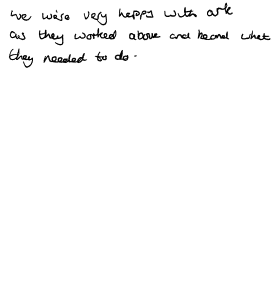 we were very happy with ark
as they worked above and beond what
they needed to do.